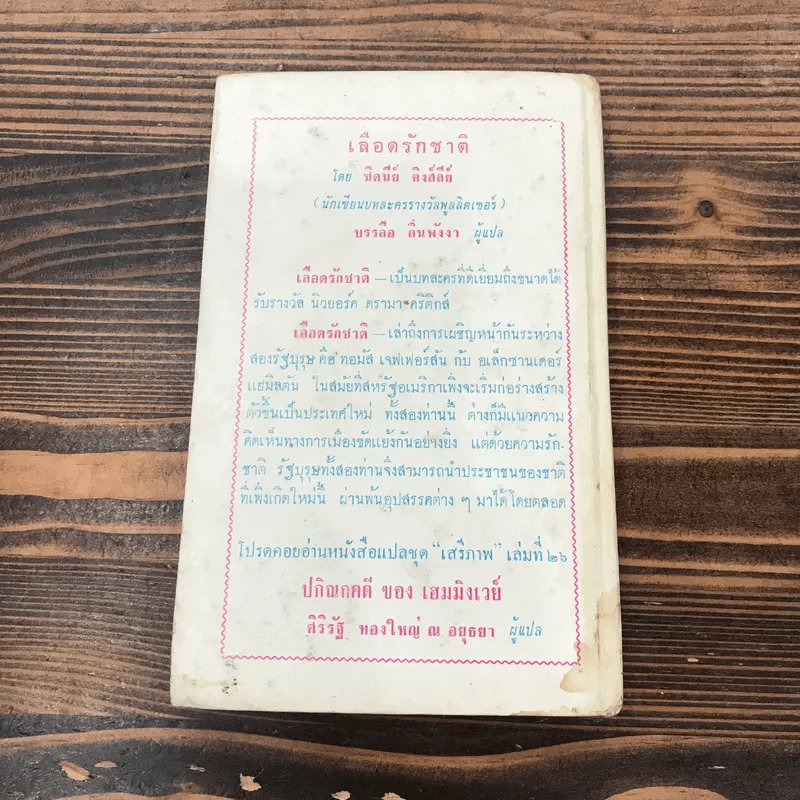 เลือดรักชาติ
โดย ซิดนีย์ คิงส์ลีย์
(นักเขียนบทละครรางวัลพูลลิตเซอร์)
บรรลือ ถิ่นพังงา ผู้แปล
เลือดรักชาติ — เป็นบทละครที่ดีเยี่ยมถึงขนาดได้
รับรางวัล นิวยอร์ค ดรามา-คริติกส์
เลือดรักชาติ — เล่าถึงการเผชิญหน้ากันระหว่าง
สองรัฐบุรุษ คือ ทอมัส เจฟเฟอร์สัน กับ อเล็กซานเดอร์
แฮมิลตัน ในสมัยที่สหรัฐอเมริกาเพิ่งจะเริ่มก่อร่างสร้าง
ตัวขึ้นเป็นประเทศใหม่ ทั้งสองท่านนี้ ต่างก็มีแนวความ
คิดเห็นทางการเมืองขัดแย้งกันอย่างยิ่ง แต่ด้วยความรัก-
ชาติ รัฐบุรุษทั้งสองท่านจึงสามารถนำประชาชนของชาติ
ที่เพิ่งเกิดใหม่นี้ ผ่านพ้นอุปสรรคต่าง ๆ มาได้โดยตลอด
โปรดคอยอ่านหนังสือแปลชุด "เสรีภาพ" เล่มที่ ๒๖
ปกิณกคดี ของ เฮมมิงเวย์
ศิริรัฐ ทองใหญ่ ณ อยุธยา ผู้แปล